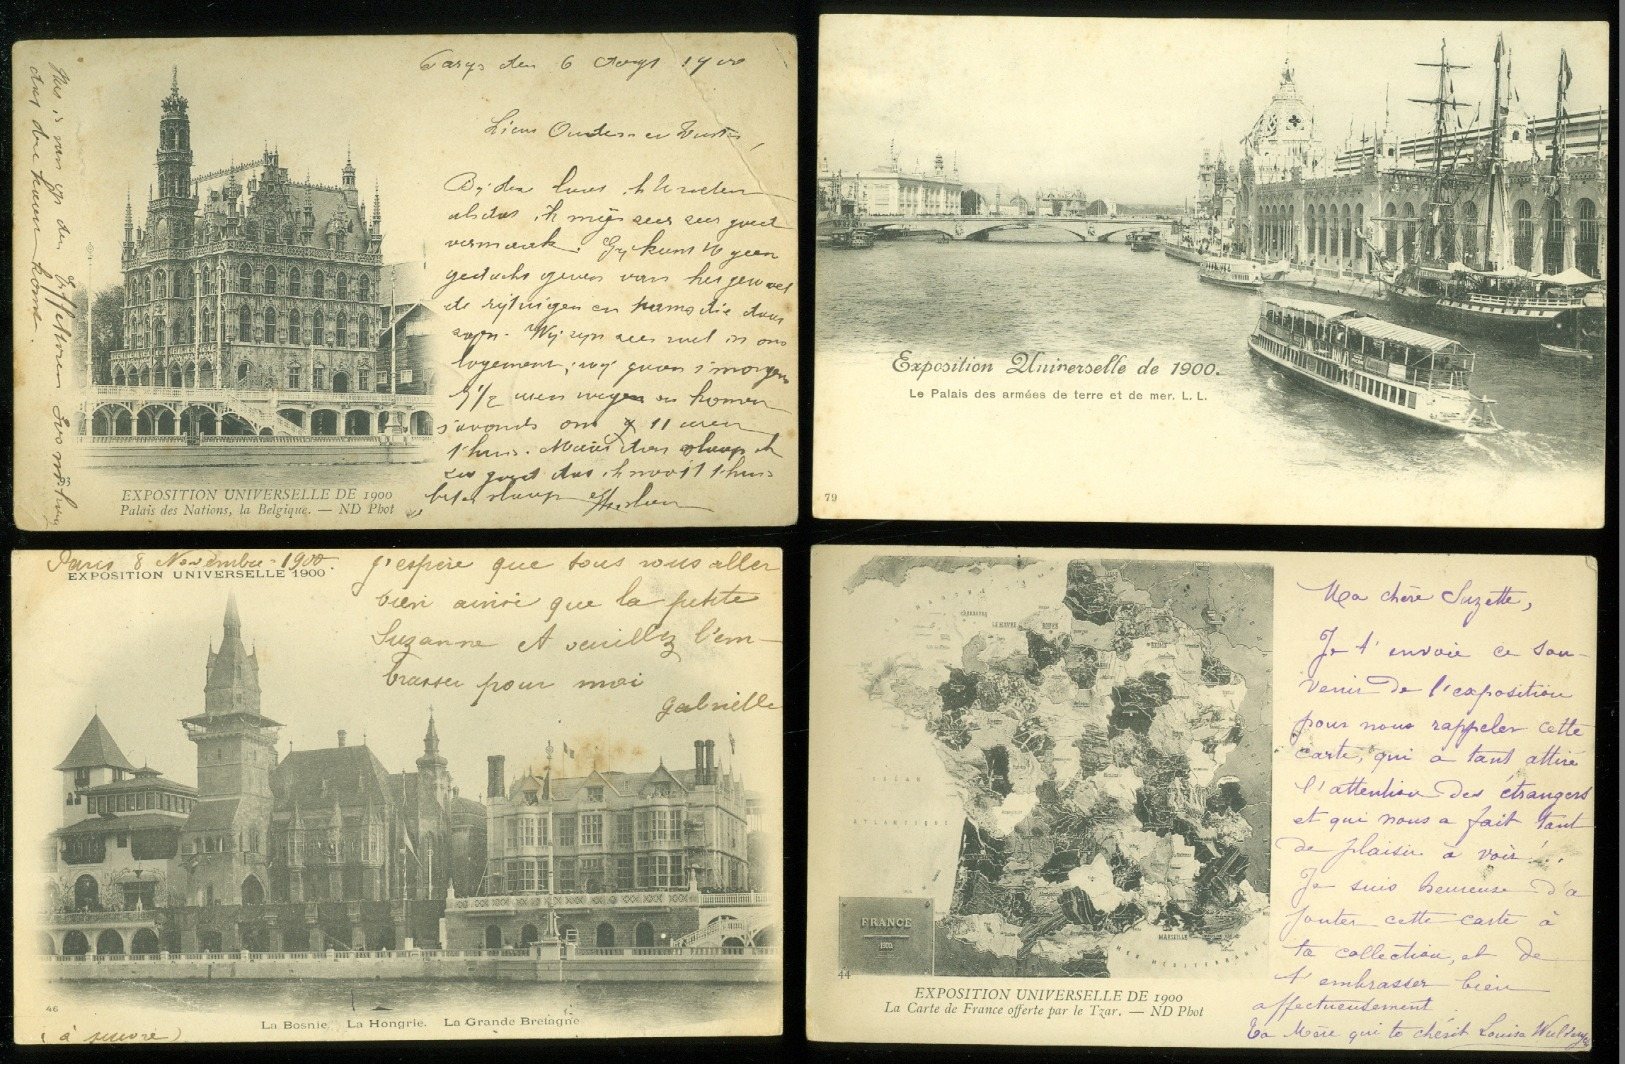 Parys den 6 Aug 1900
Lieve Ouders en Zusters,
Bij dezen laat ik U weten
alsdat ik mijn zeer zeer goed
vermaak. Gij kunt U geen
gedacht geven van het gewoel
de rijtuigen en trams die daar
zijn. Wij zijn zeer wel in ons
logement, wij gaan s'morgens
8 1/2 uren wegen en komen
s'avonds om 11 uren
t'huis. slaap ik
zoo goed dat ik nooit t'huis
beter slaap
dat die kunnen komt.
EXPOSITION UNIVERSELLE DE 1900
Palais des Nations, la Belgique. — ND Phot
Exposition Universelle de 1900.
Le Palais des armées de terre et de mer. L. L.
79
Paris 8 Novembre - 1900.
EXPOSITION UNIVERSELLE 1900
J'espère que tous vous aller
bien ainsi que la petite
Suzanne et veuillez l'em-
brasser pour moi
Gabrielle
46
La Bosnie. La Hongrie. La Grande Bretagne
(à suivre)
FRANCE
1900
MARSEILLE
MER MÉDITERRANÉE
OCÉAN
ATLANTIQUE
44
EXPOSITION UNIVERSELLE DE 1900
La Carte de France offerte par le Tzar. — ND Phot
Ma chère Suzette,
Je t'envoie ce sou-
venir de l'exposition
pour nous rappeler cette
carte, qui a tant attiré
l'attention des étrangers
et qui nous a fait tant
de plaisir à voir!..
Je suis heureuse d'a
jouter cette carte à
ta collection, et de
t'embrasser bien
affectueusement
Ta Mère qui te chérit Louise